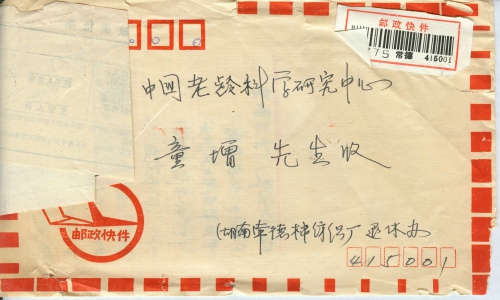 邮政快件
常德 415001
中国老龄科学研究中心
童增 先生收
邮政快件
湖南常德棉纺织厂退休办
415001